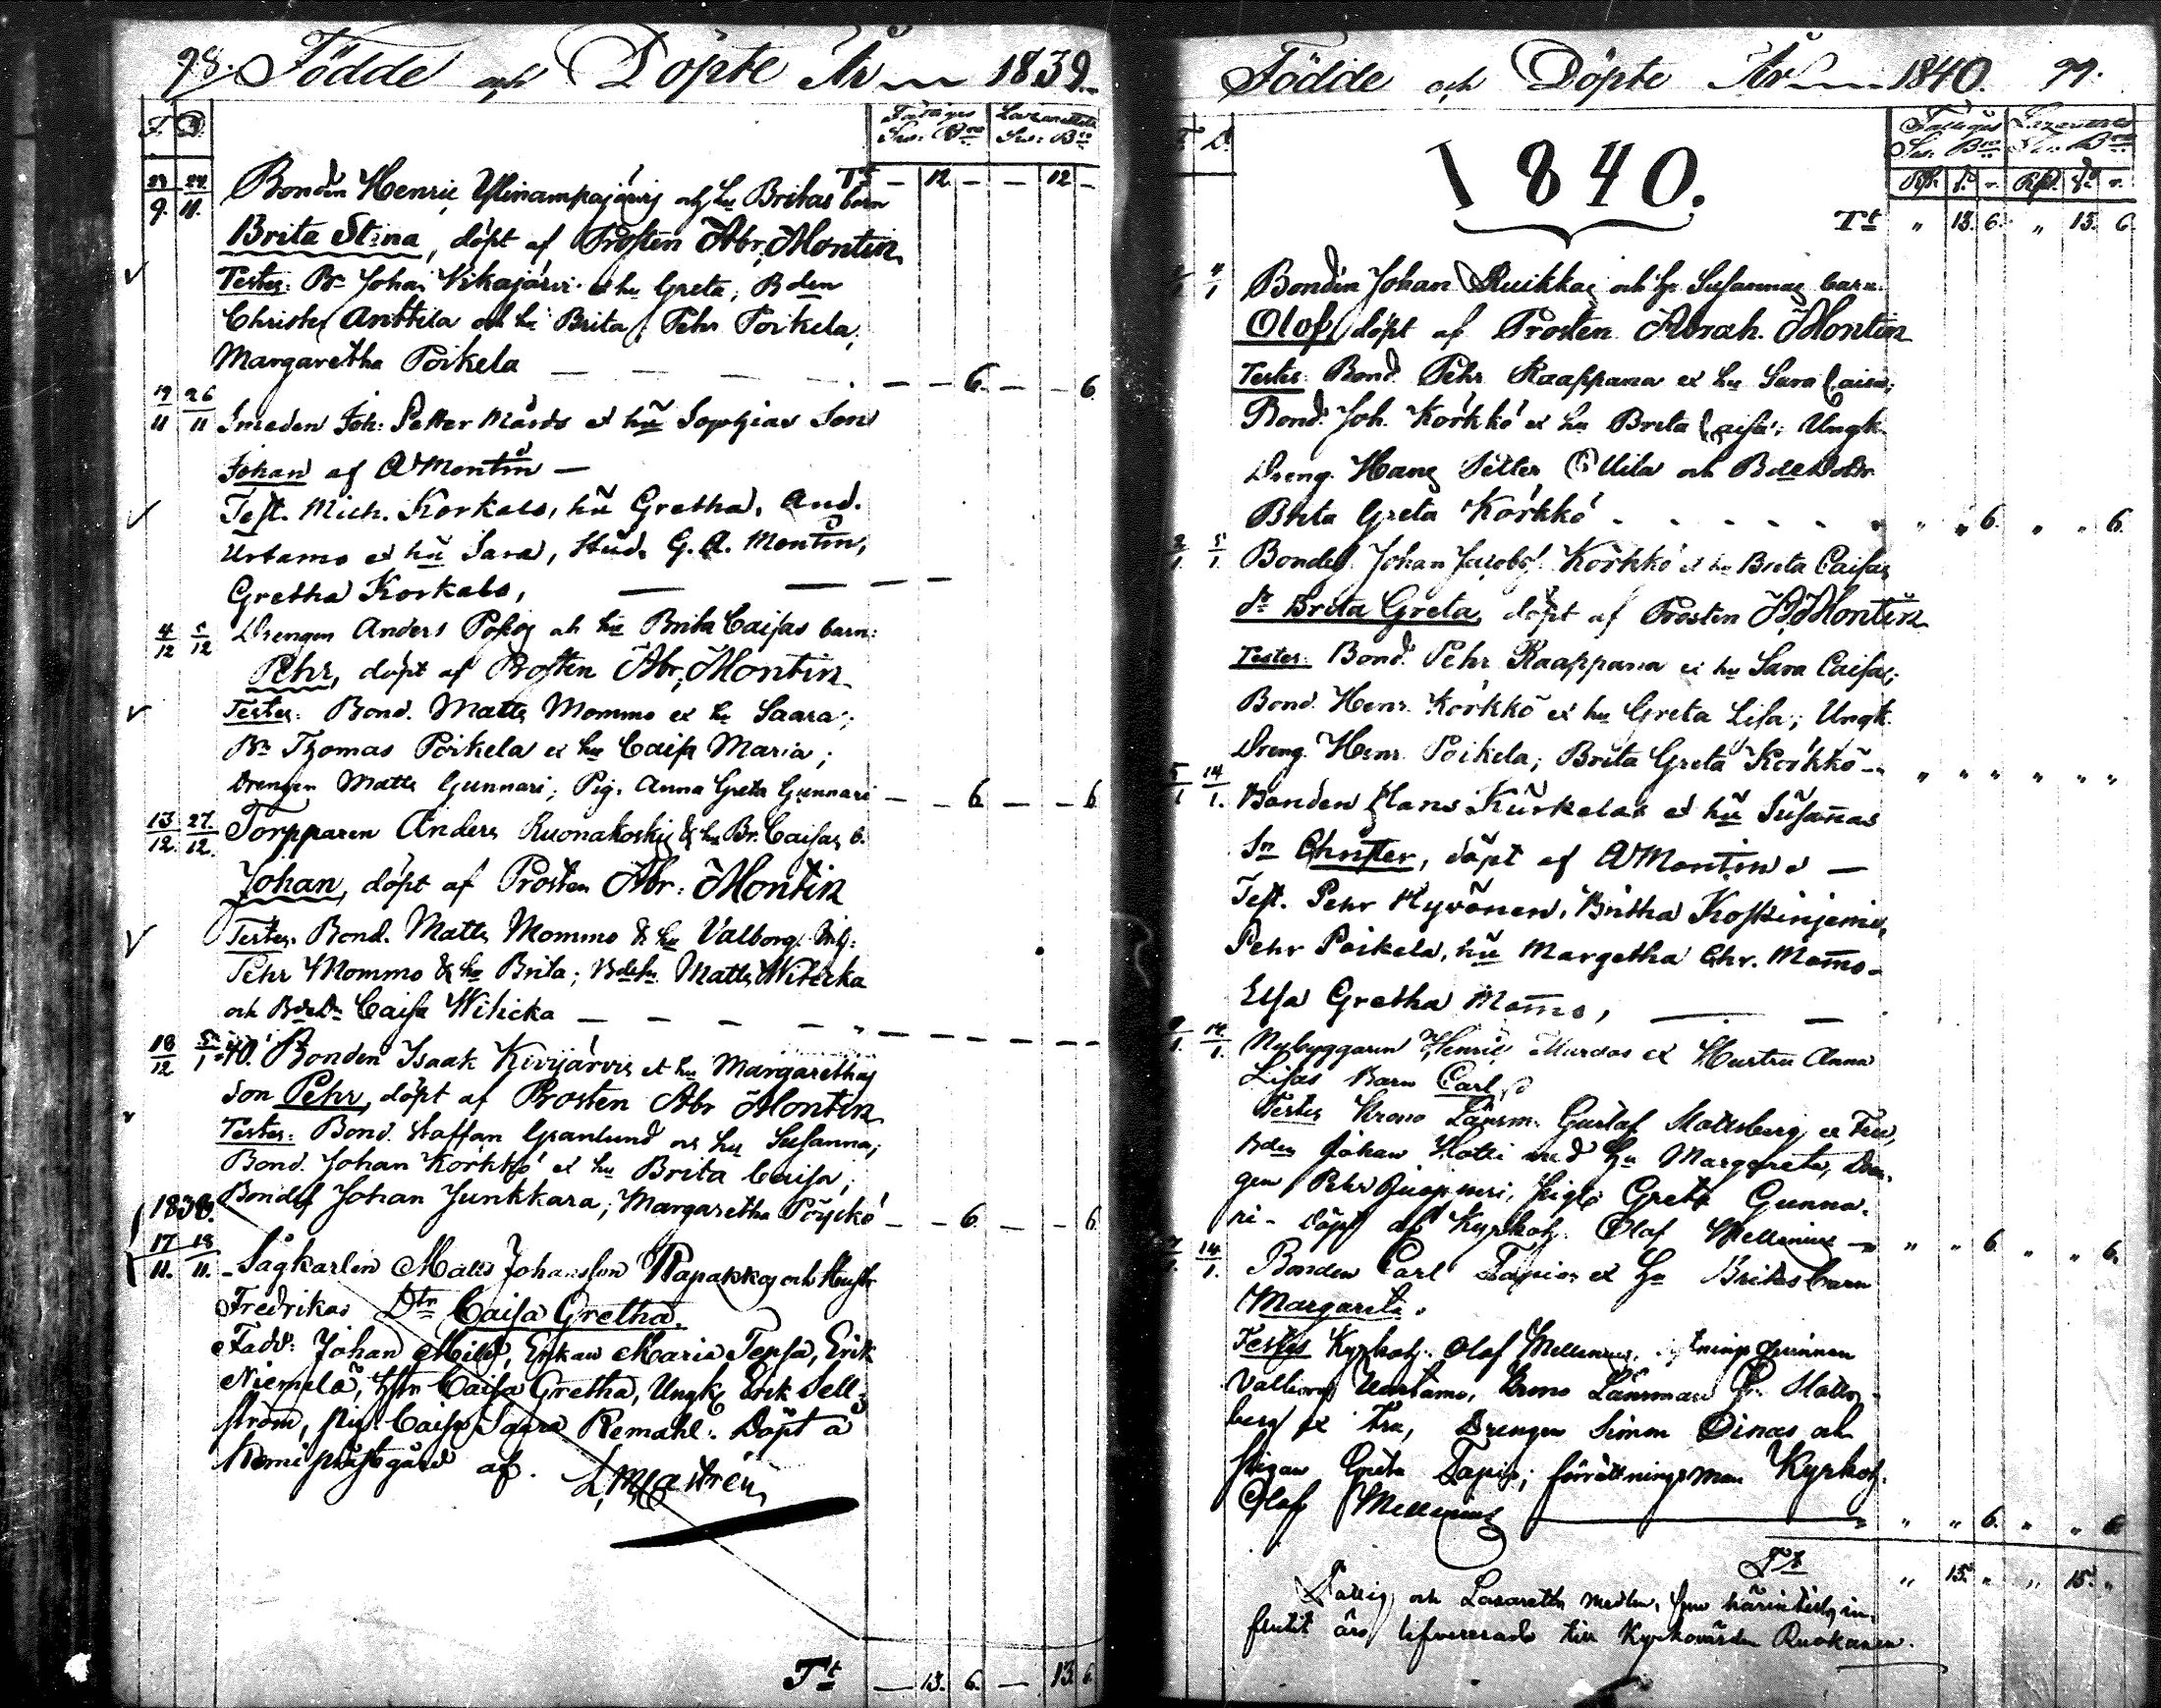 98. Födde och Döpte År 1839.
F. D. Fattiges Lazarettets
Bonden Henric Ylinampajärvis och hu Britas barn
Tt — 12 — — 12 —
27/9. 24/11.
Brita Stina, döpt af Prosten Abr. Montin
Testes: Bn Johan Vikajärvi et hu Greta, Bden
Christer Anttila och hu Brita, Pehr Poikela,
Margaretha Poikela — — 6. — — 6
19/11 26/11 Smeden Joh: Petter Mårds et hu Sophias Son
Johan af A Montin —
Test. Mich. Korkalo, hu Gretha, And.
Urtamo et hu Sara, Stud. G. A. Montin,
Gretha Korkalo,
4/12 5/12 Drengen Anders och hu Brita Caisas barn:
Pehr, döpt af Prosten Abr. Montin
Testes: Bond. Matts Mommo et hu Saara;
Bn Thomas Poikela et hu Caisa Maria;
Drengen Matts Gunnari; Pig. Anna Greta Gunnari — — 6 — — 6
13/12. 27./12. Torpparen Anders Ruonakoskis & hu Br. Caisas b.
Johan, döpt af Prosten Abr: Montin
Testes. Bond. Matts Mommo & hu Valborg.
Pehr Mommo & hu Brita; Matts Wihicka
och Caisa Wihicka
18/12 Bonden Isaak Kivijärvis et hu Margarethas
Son Pehr, döpt af Prosten Abr Montin
Testes: Bond. Staffan Granlund och hu Susanna;
Bond. Johan Körkkö et hu Brita Caisa;
Johan Junkkara; Margaretha Pöyckö — — 6 — — 6
17/11. 18/11. Sågkarlen Matts Johansson Rapakkos och Hustr
Fredrikas Dtr Caisa Gretha.
Fadd: Johan, Enkan Maria Tepsa, Erik
Niemelä, hstr Caisa Gretha, Ungk. Erik Sell-
ström, pig. Caisa Saara Remahl. Döpt å
Kemi prästgård af. L. M. Castrén
Tt — 13. 6. — 13. 6
Födde och Döpte År 1840. 99.
F. D. Fattiges Lazarettets
1840.
Tt " 13. 6. " 13. 6
4/1 Bonden Johan Ruikkas och hu Susannas barn
Olof, döpt af Prosten Abrah. Montin
Testes: Bond. Pehr Raappana et hu Sara Caisa;
Bond. Joh. Körkkö et hu Brita Caisa; Ungk.
Dreng. Hans Petter Ollila och
Brita Greta Körkkö " " 6. " " 6.
5/1. Johan Jacobss. Körkkö et hu Brita Caisas
dr Brita Greta, döpt af Prosten A. Montin
Testes: Bond. Pehr Raappana et hu Sara Caisa;
Bond. Henr. Körkkö et hu Greta Lisa; Ungk.
Dreng. Henr. Poikela; Brita Greta Körkkö " " " " " "
5/1 14/1. Bonden Hans Kurkelas et hu Susanas
Sn Christer, döpt af A Montin —
Test. Pehr Hyvönen, Britha Koskinjemi,
Pehr Poikela, hu Margetha Chr. Momo
Elsa Gretha Momo,
14/1. Nybyggaren Henric Murdas et Hustru Anna
Lisas Barn Carl
Testes Krono Länsm. Gustaf et Fru,
Bden Johan med hu Margareta, Dren-
gen Pehr, Pigan Greta Gunna-
ri - döpt af Kyrkoh. Olof Mellenius — " " 6 " " 6.
14/1. Bonden Carl Tapios et hu Britas barn
Margareta.
Testes Kyrkoh. Olof Mellenius,
Valborg Uurtamo, Krono Länsman G.
berg et Fru, Drengen Simon och
Pigan Greta Tapio; förrättningsman Kyrkoh.
Olof Mellenius " " 6. " " 6
Tt " 15. " " 15. "
Fattig och Lazaretts medlen, som härintills in-
flutit äro lefvererade till Kyrkovärden Ruokanen.